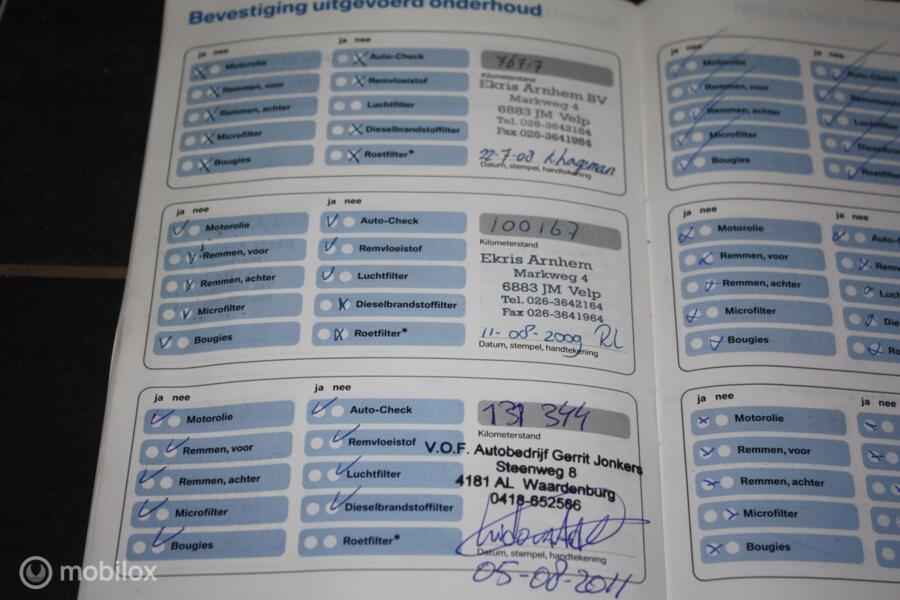 Bevestiging uitgevoerd onderhoud
ja nee
Motorolie
Remmen, voor
Remmen, achter
Microfilter
Bougies
ja nee
Auto-Check
Remvloeistof
Luchtfilter
Dieselbrandstoffilter
Roetfilter*
76717
Kilometerstand
Ekris Arnhem BV
Markweg 4
6883 JM Velp
Tel. 026-3642164
Fax 026-3641964
22-7-08
Datum, stempel, handtekening
ja nee
Motorolie
Remmen, voor
Remmen, achter
Microfilter
Bougies
ja nee
Auto-Check
Remvloeistof
Luchtfilter
Dieselbrandstoffilter
Roetfilter*
100167
Kilometerstand
Ekris Arnhem
Markweg 4
6883 JM Velp
Tel. 026-3642164
Fax 026-3641964
11-08-2009 RL
Datum, stempel, handtekening
ja nee
Motorolie
Remmen, voor
Remmen, achter
Microfilter
Bougies
ja nee
Auto-Check
Remvloeistof
Luchtfilter
Dieselbrandstoffilter
Roetfilter*
131 344
Kilometerstand
V.O.F. Autobedrijf Gerrit Jonkers
Steenweg 8
4181 AL Waardenburg
0418-652566
Datum, stempel, handtekening
05-08-2011
ja nee
Motorolie
Remmen, voor
Remmen, achter
Microfilter
Bougies
ja
Auto-Check
Remvloeistof
Luchtfilter
Diesel
Roetfilter
ja nee
Motorolie
Remmen, voor
Remmen, achter
Microfilter
Bougies
ja nee
Auto-C
Remv
Luch
Die
Ro
ja nee
Motorolie
Remmen, voor
Remmen, achter
Microfilter
Bougies
ja nee
mobilox